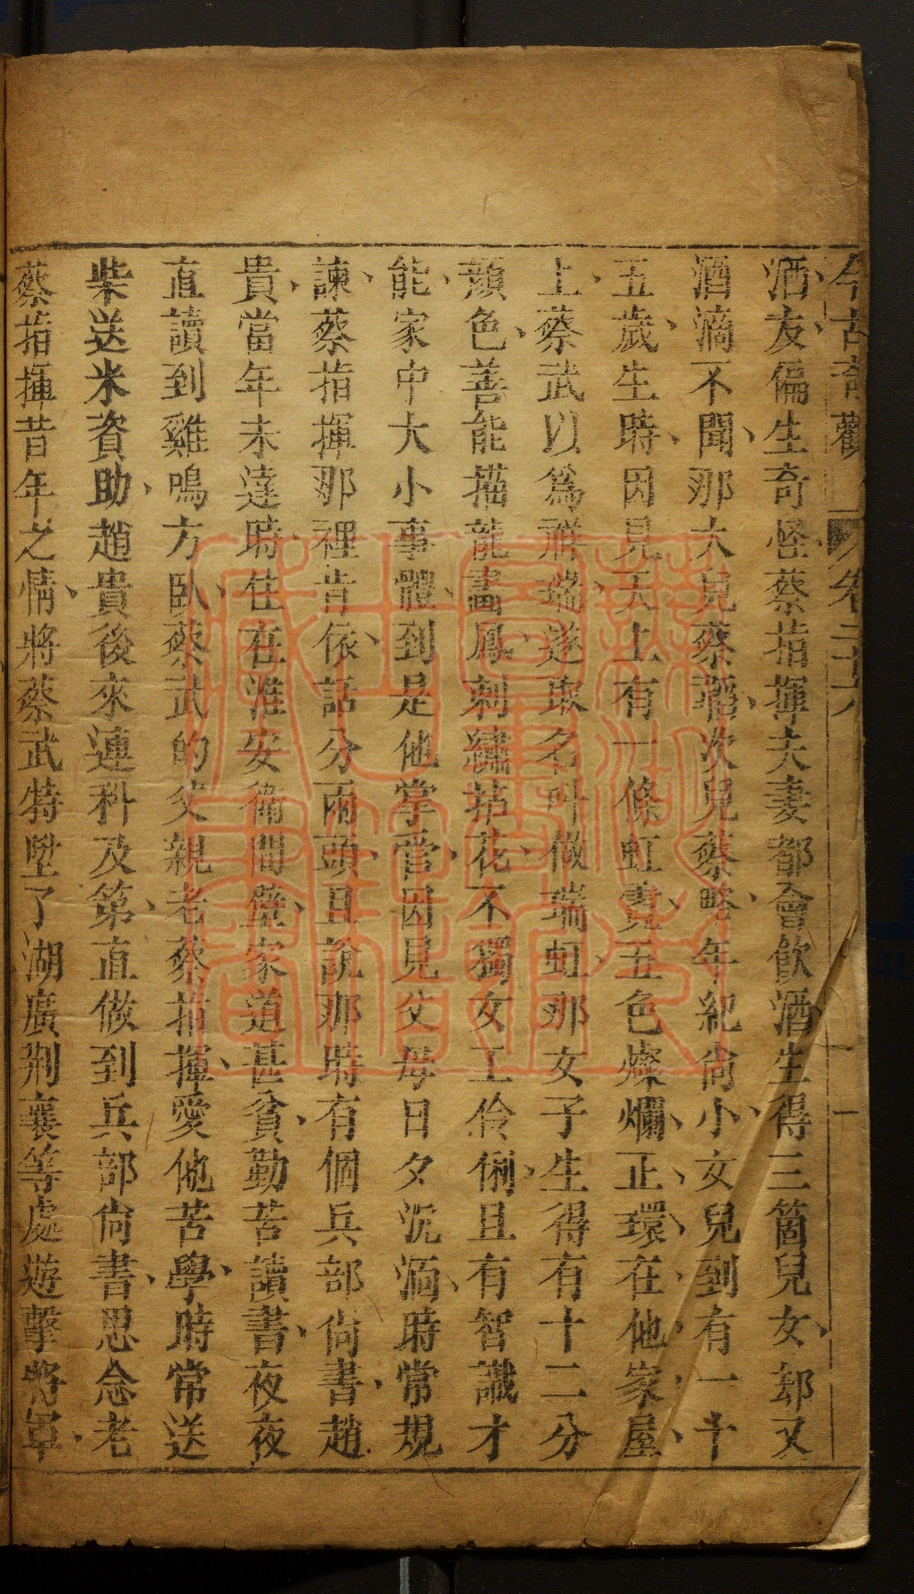 今古奇觀 卷二十六
酒友偏生奇怪蔡指揮夫妻都會飲酒生得三箇兒女却又
酒滴不聞那大兒蔡韜次兒蔡略年紀尚小女兒到有一十
五歲生時因見天上有一條虹霓五色燦爛正環在他家屋
上蔡武以爲祥瑞遂取名叫做瑞虹那女子生得有十二分
顏色善能描龍畫鳳刺繡拈花不獨女工伶俐且有智識才
能家中大小事體到是他掌管因見父母日夕沉湎時常規
諫蔡指揮那裡肯依話分兩頭且說那時有個兵部尚書趙
貴當年未達時住在淮安衛間壁家道甚貧勤苦讀書夜夜
直讀到雞鳴方臥蔡武的父親老蔡指揮愛他苦學時常送
柴送米資助趙貴後來連科及第直做到兵部尚書思念老
蔡指揮昔年之情將蔡武特陞了湖廣荆襄等處遊擊將軍